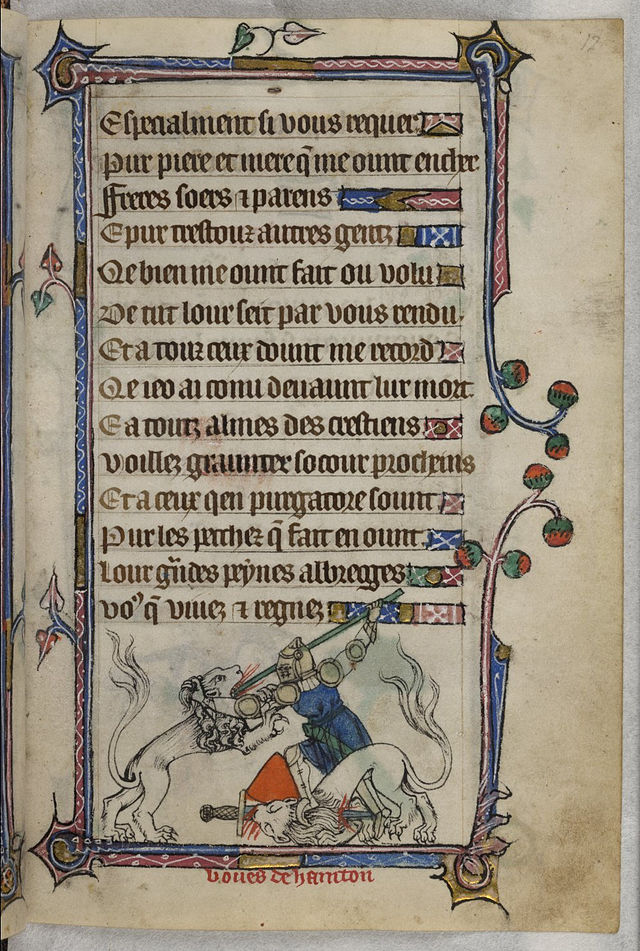 12
Especialment si vous requer
Pur piere et miere q̃ me ount encher
Freres soers ⁊ parens
E pur trestouz autres gentz
Qe bien me ount fait ou volu
De tut lour seit par vous rendu.
Et a touz ceux dount me record
Qe ieo ai conu deuaunt lur mort.
E a toutz almes des crestiens
Voillez graunter socour procheins
Et a ceux qen purgatore sount
Pur les pechez q̃ fait en ount.
Lour g̃ndes peynes albregges
Vo⁹ q̃ viuez ⁊ regnez
boues de hamton